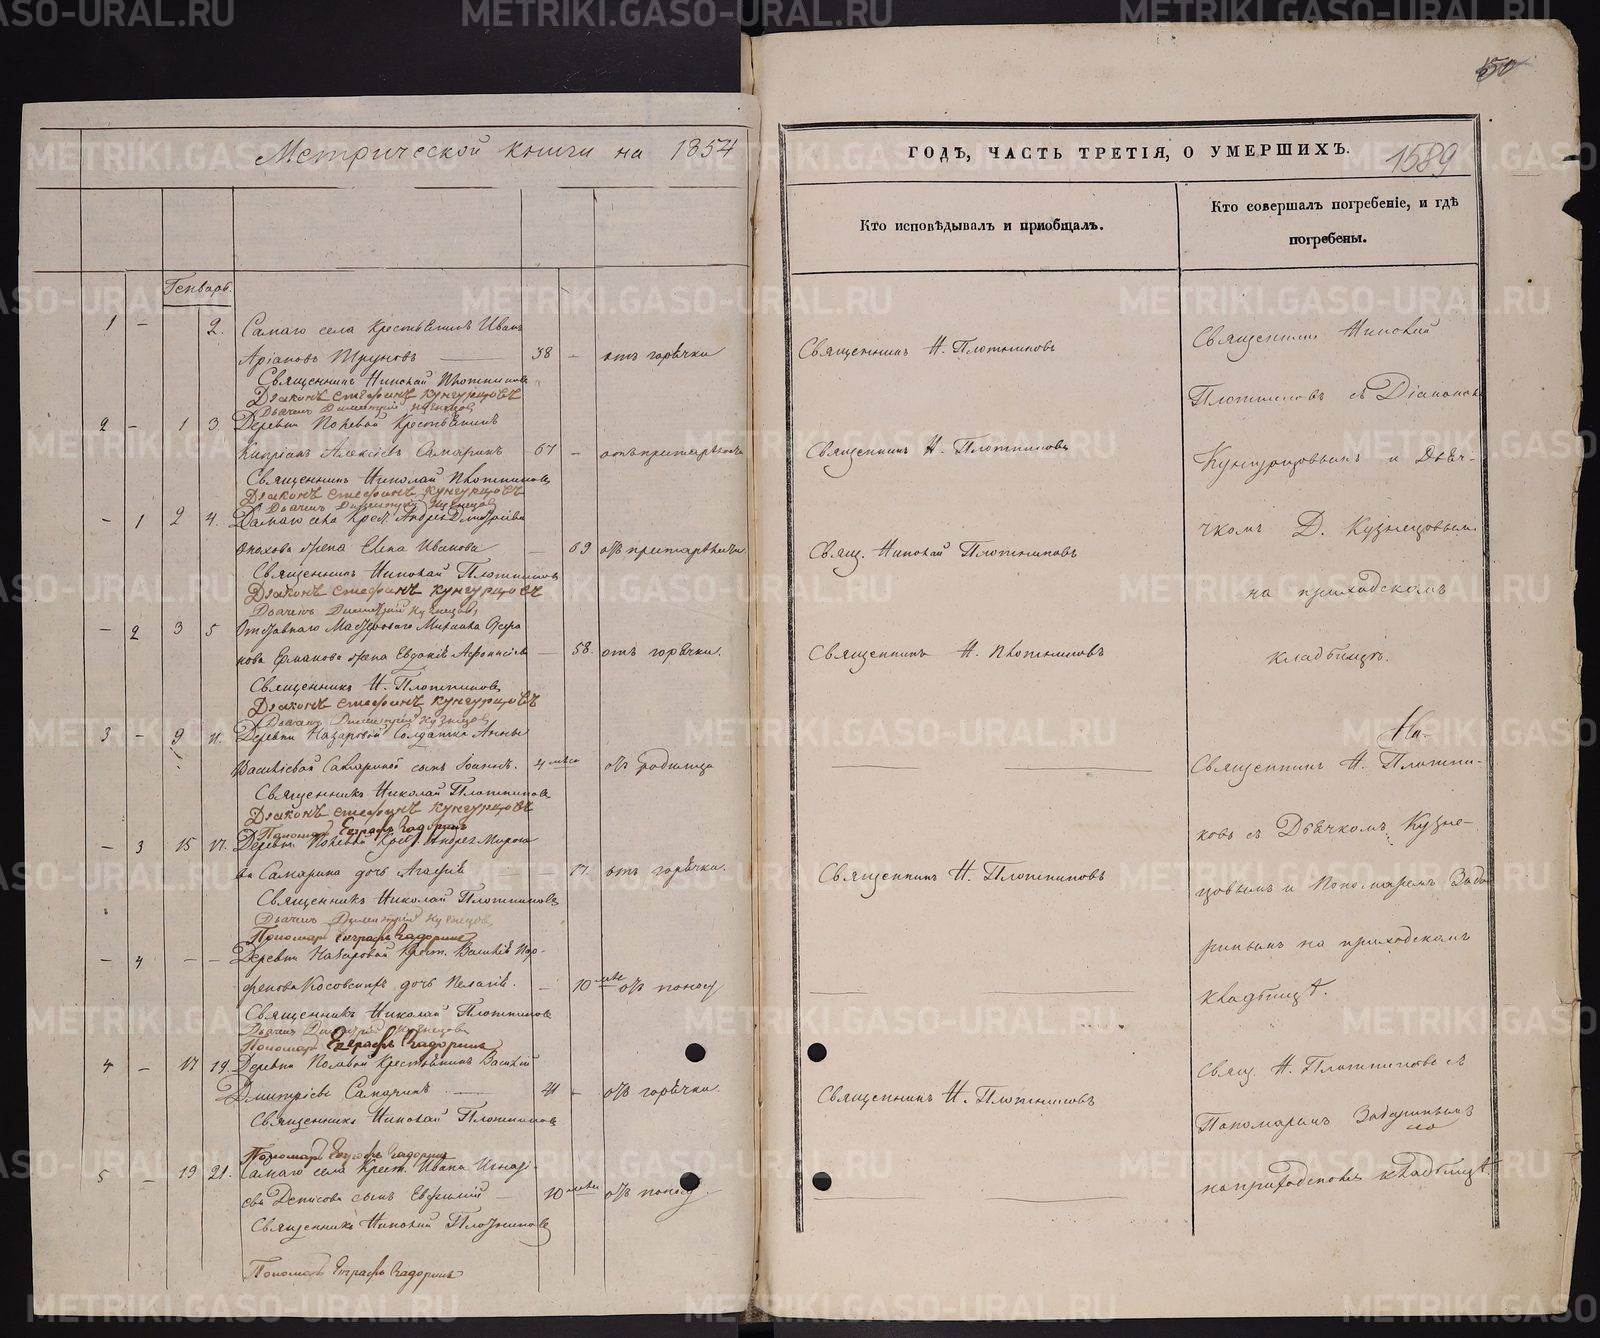 Метрической книги на 1854
Генварь.
1 - 2. Самаго села крестьянинъ Иванъ
Труновъ 38 - отъ горячки
Священникъ Николай Плотниковъ
Діаконъ Стефанъ Кунгурцовъ
Дьячекъ Димитрій Кузнецовъ
2 - 1 3. Деревни крестьянинъ
Кипріанъ Алексіевъ Самаринъ 67 -
Священникъ Николай Плотниковъ
Діаконъ Стефанъ Кунгурцовъ
Дьячекъ Димитрій Кузнецовъ
- 1 2 4. Самаго села Крест. Андрея Димитріева
жена Елена Иванова - 69
Священникъ Николай Плотниковъ
Діаконъ Стефанъ Кунгурцовъ
Дьячекъ Димитрій Кузнецовъ
- 2 3 5 Отставнаго Мастероваго Михаила
Ермакова жена Евдокія - 58. отъ горячки.
Священникъ Н. Плотниковъ
Діаконъ Стефанъ Кунгурцовъ
Дьячекъ Димитрій Кузнецовъ
3 - 9 11. Деревни Назаровой Солдатки Анны
Василіевой сынъ Іоаннъ. 4 мѣся отъ родимца
Священникъ Николай Плотниковъ
Діаконъ Стефанъ Кунгурцовъ
Пономарь Евграфъ Задоринъ
- 3 15 17. Деревни Крест. Мироно
ва Самарина дочь Агафія - 17. отъ горячки.
Священникъ Николай Плотниковъ
Дьячекъ Димитрій Кузнецовъ
Пономарь Евграфъ Задоринъ
- 4 - - Деревни Назаровой Крест. Василія Пар-
фенова дочь Пелагія. - 10 мѣс отъ поносу
Священникъ Николай Плотниковъ
Дьячекъ Димитрій Кузнецовъ
Пономарь Евграфъ Задоринъ
4 - 17 19. Деревни крестьянинъ Василій
Димитріевъ Самаринъ - отъ горячки.
Священникъ Николай Плотниковъ
Пономарь Евграфъ Задоринъ
5 - 19 21. Самаго села Крест. Ивана Игнаті-
ева Денисова сынъ - 10 мѣся отъ поносу.
Священникъ Николай Плотниковъ
Пономарь Евграфъ Задоринъ
ГОДЪ, ЧАСТЬ ТРЕТІЯ, О УМЕРШИХЪ.
1589
Кто исповѣдывалъ и пріобщалъ.
Кто совершалъ погребеніе, и гдѣ
погребены.
Священникъ Н. Плотниковъ
Священникъ Н. Плотниковъ
Свящ. Николай Плотниковъ
Священникъ Н. Плотниковъ
Священникъ Н. Плотниковъ
Священникъ Н. Плотниковъ
Священникъ Николай
Плотниковъ съ Діакономъ
Кунгурцовымъ и Дьяч-
комъ Д. Кузнецовымъ
на приходскомъ
кладбищѣ.
Священникъ Н. Плотни-
ковъ съ Дьячкомъ Кузне-
цовымъ и Пономаремъ Задо
ринымъ на приходскомъ
кладбищѣ.
Свящ. Н. Плотниковъ съ
Пономаремъ Задоринымъ
на приходскомъ кладбищѣ
METRIKI.GASO-URAL.RU